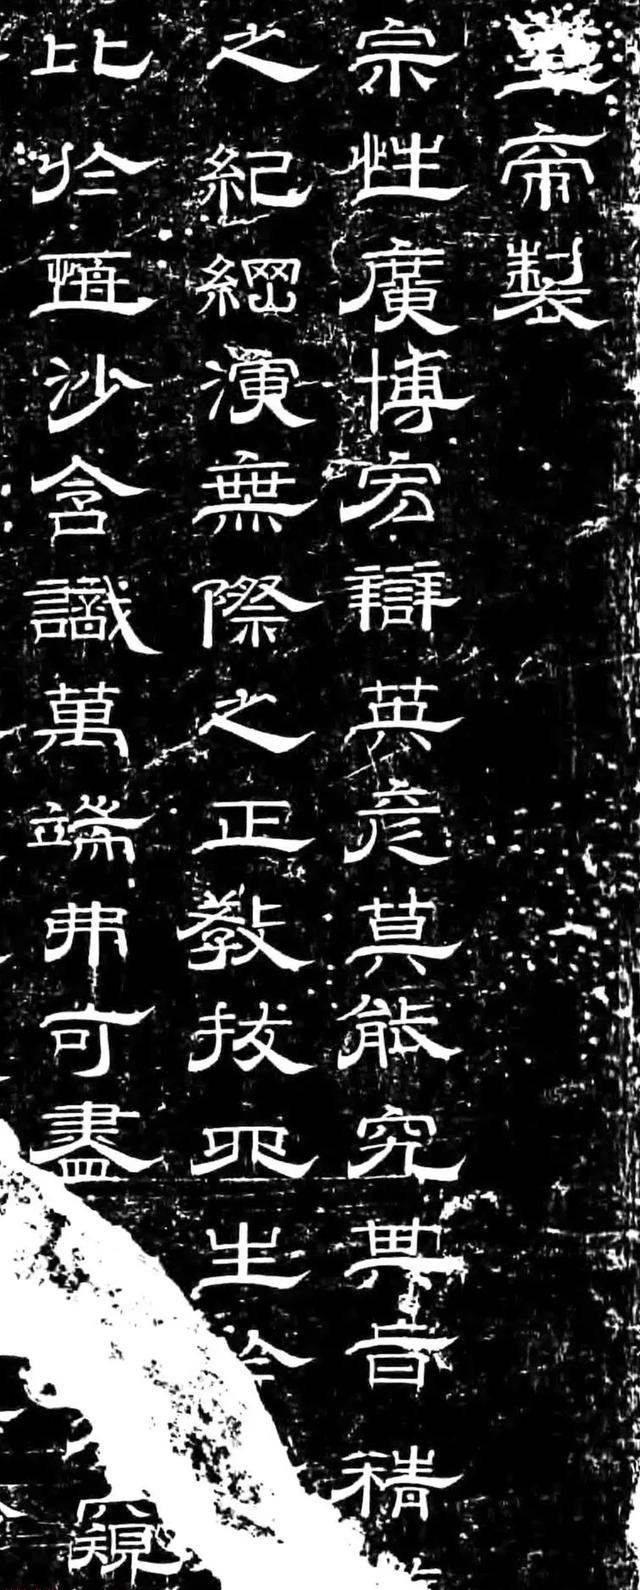 皇帝製
宗性廣博宏辯英彥莫能究其旨精
之紀綱演無際之正教拔四生於
比於恒沙含識萬端弗可盡窺